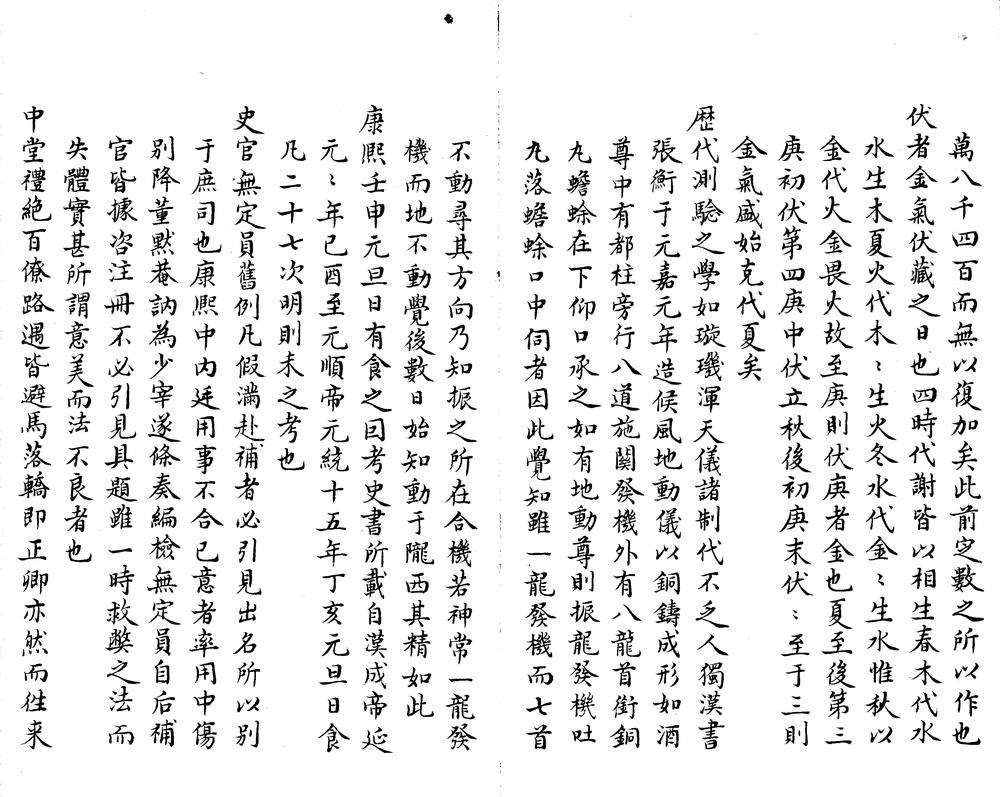 萬八千四百而無以復加矣此前定數之所以作也
伏者金氣伏藏之日也四時代謝皆以相生春木代水
水生木夏火代木〻生火冬水代金〻生水惟秋以
金代火金畏火故至庚則伏庚者金也夏至後第三
庚初伏第四庚中伏立秋後初庚末伏〻至于三則
金氣盛始克代夏矣
歴代測驗之學如璇璣渾天儀諸制代不乏人獨漢書
張衡于元嘉元年造候風地動儀以銅鑄成形如酒
尊中有都柱旁行八道施關發機外有八龍首銜銅
丸蟾蜍在下仰口承之如有地動尊則振龍發機吐
丸落蟾蜍口中伺者因此覺知雖一龍發機而七首
不動尋其方向乃知振之所在合機若神常一龍發
機而地不動覺後數日始知動于隴西其精如此
康熙壬申元旦日有食之曰考史書所載自漢成帝延
元〻年已酉至元順帝元統十五年丁亥元旦日食
凡二十七次明則未之考也
史官無定員舊例凡假滿赴補者必引見出名所以别
于庶司也康熙中内廷用事不合已意者率用中傷
别降董默菴訥為少宰遂條奏編檢無定員自后補
官皆據咨注冊不必引見具題雖一時救獘之法而
失體實甚所謂意美而法不良者也
中堂禮絶百僚路遇皆避馬落轎即正卿亦然而徃来